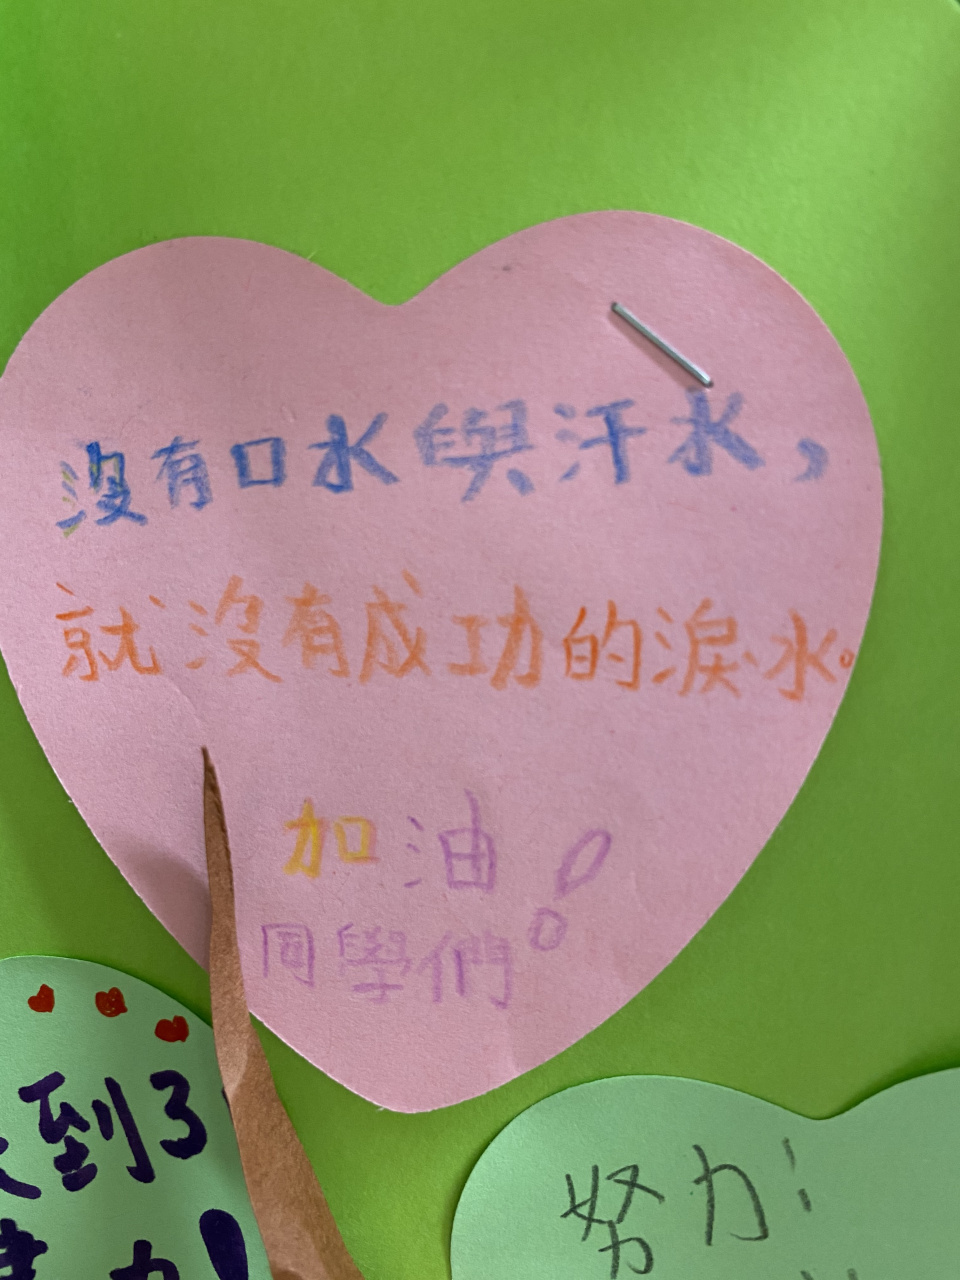 沒有口水與汗水，
就沒有成功的淚水。
加油！
同學們
到了
努力!